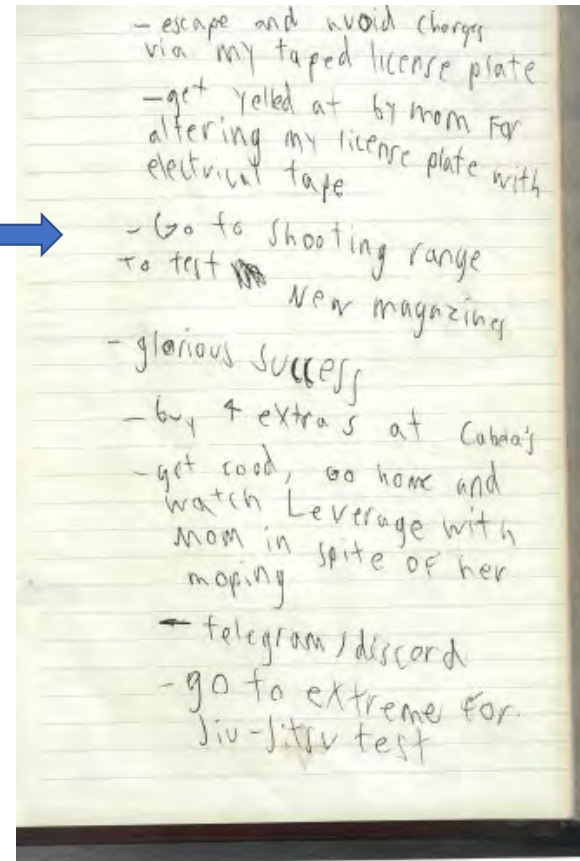 - escape and avoid charges
via my taped license plate
- get yelled at by mom for
altering my license plate with
electrical tape
- Go to shooting range
to test
New magazines
- glorious success
- buy 4 extra s at Cabela's
- get food, go home and
watch Leverage with
mom in spite of her
moping
- telegram / discord
- go to extreme for
Jiu-Jitsu test